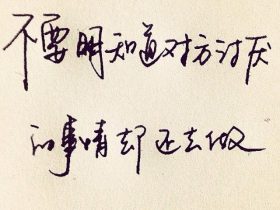 不要明知道对方讨厌
的事情却还去做